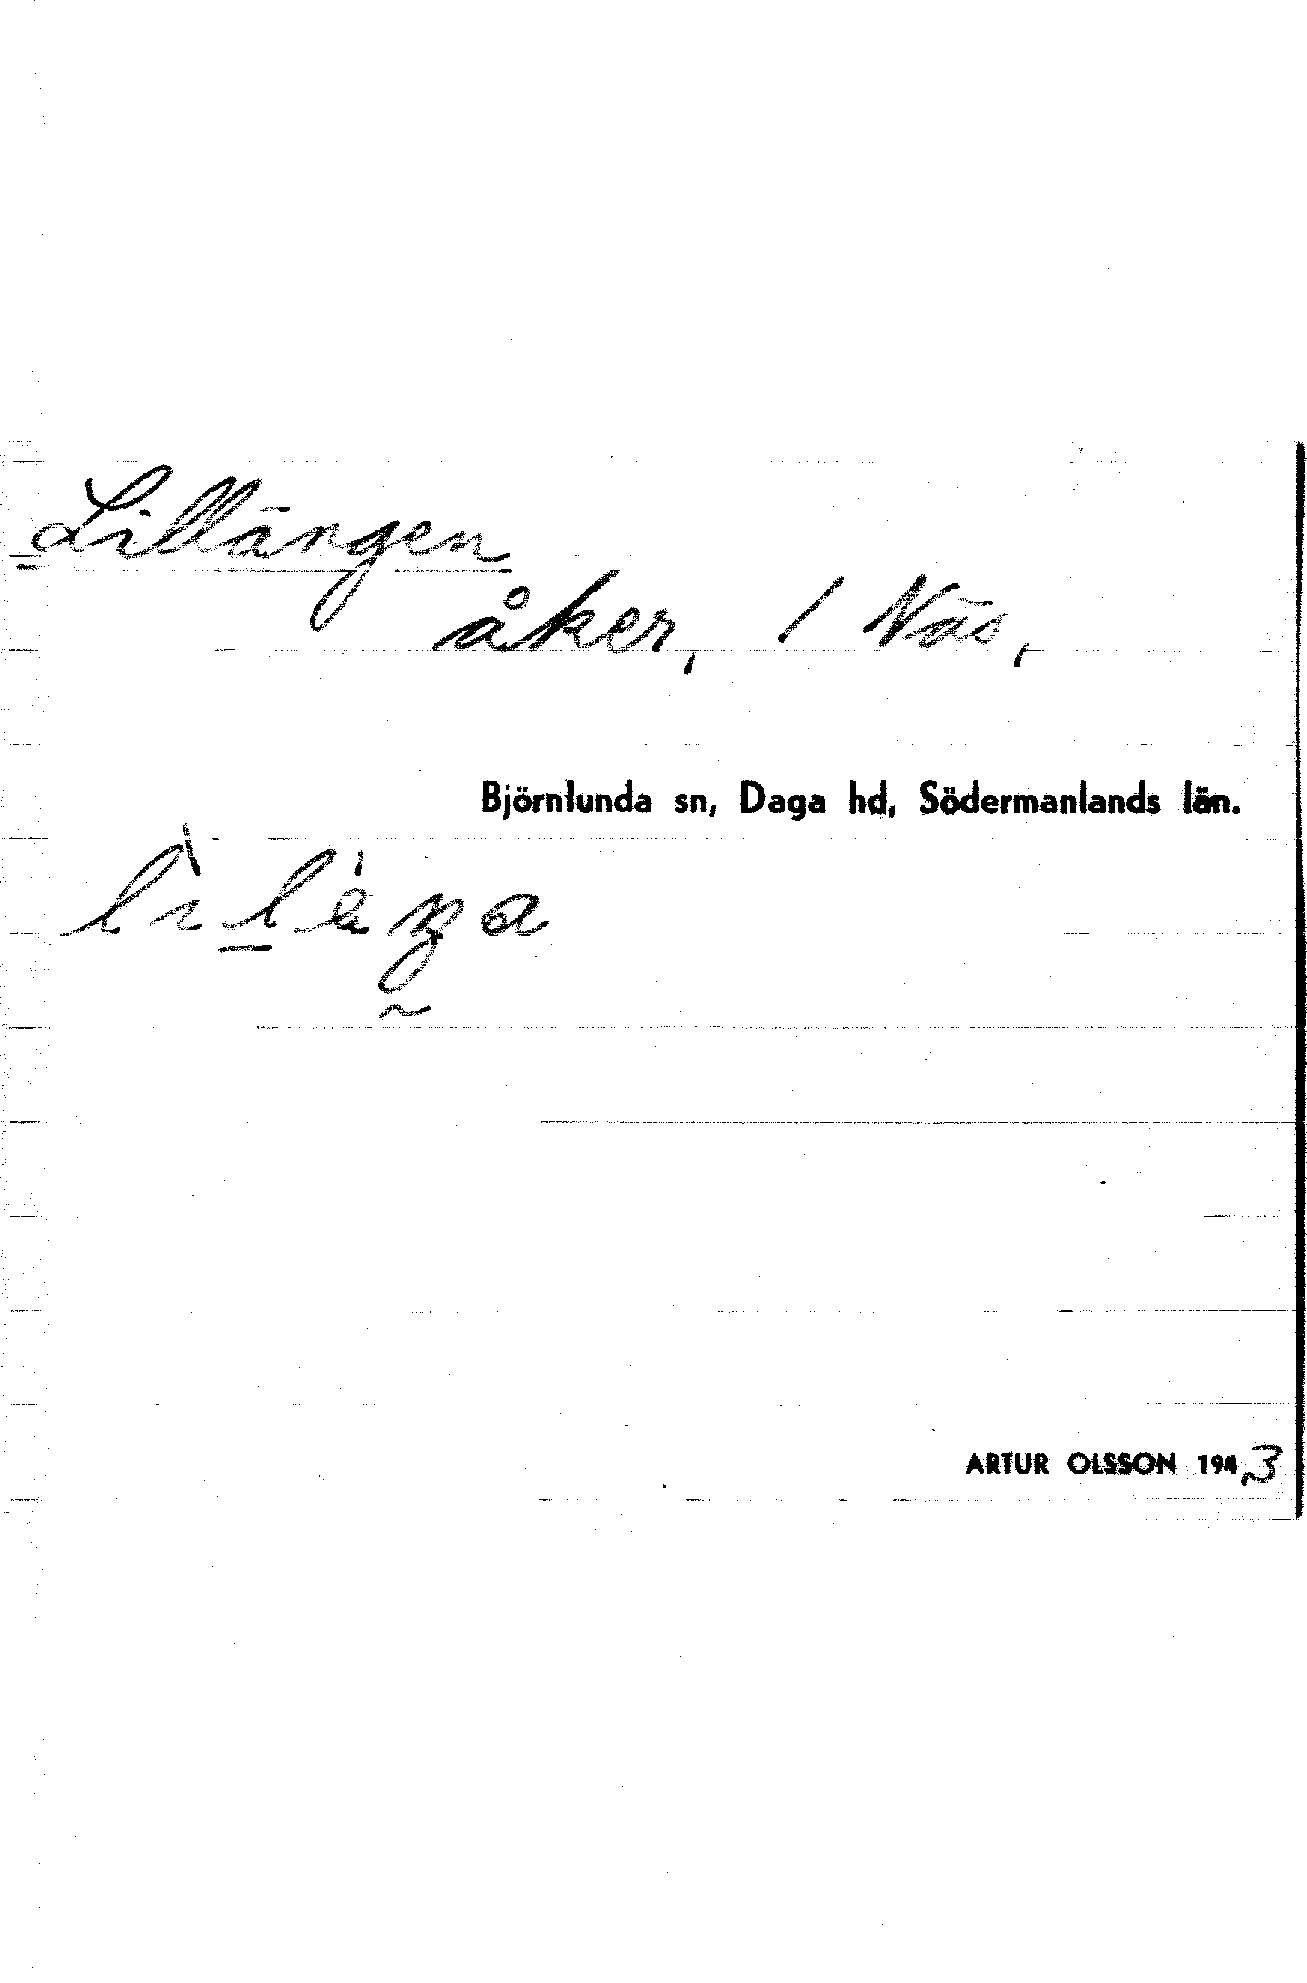 Lillängen
åker, / Näs,
Björnlunda sn, Daga hd, Södermanlands län.
ARTUR OLSSON 1943